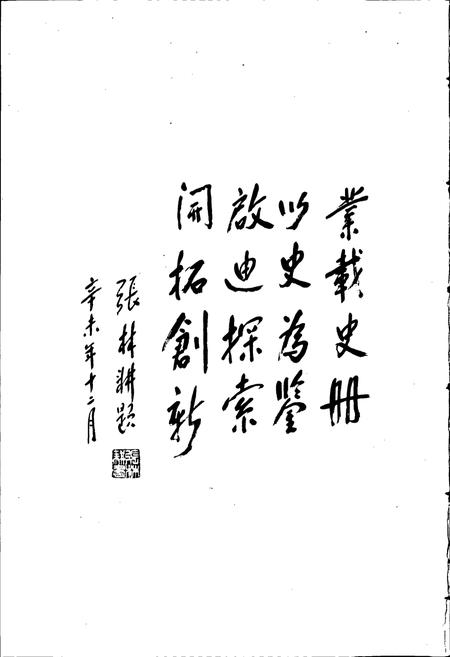 業載史册
以史為鑒
啟迪探索
開拓創新
張林耕題
辛未年十二月